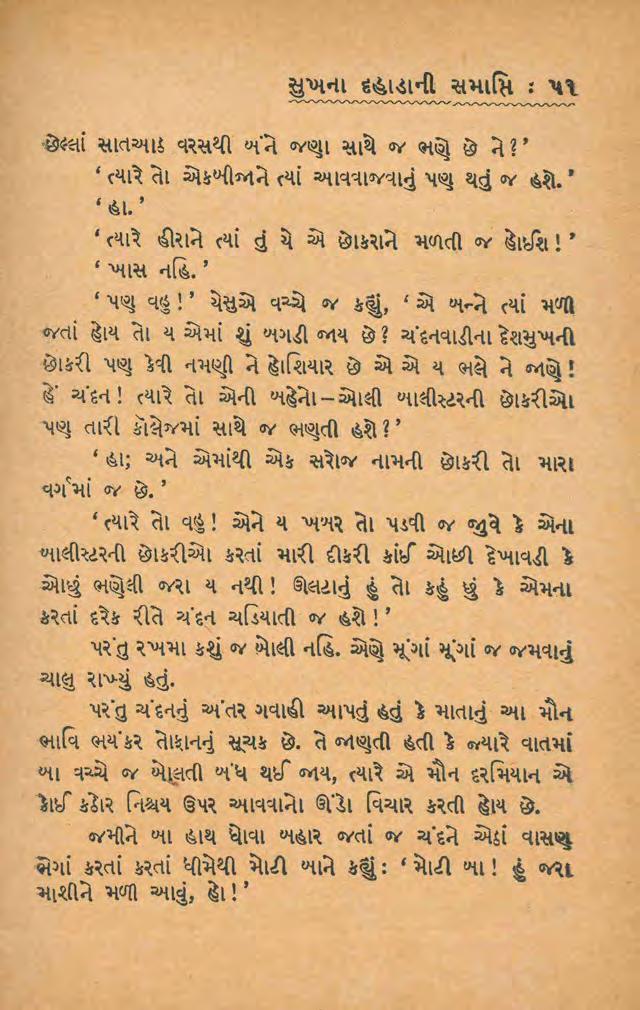 સુખના દહાડાની સમાપ્તિ : ૫૧
છેલ્લાં સાતઆઠ વરસથી બંને જણા સાથે જ ભણે છે ને?’
‘ત્યારે તો એકબીજાને ત્યાં આવવાજવાનું પણ થતું જ હશે.’
‘હા.’
‘ત્યારે હીરાને ત્યાં તું યે એ છોકરાને મળતી જ હોઈશ!’
‘ખાસ નહિ.’
‘પણ વહુ!’ યેસુએ વચ્ચે જ કહ્યું, ‘એ બન્ને ત્યાં મળી
જતાં હોય તો ય એમાં શું બગડી જાય છે? ચંદનવાડીના દેશમુખની
છોકરી પણ કેવી નમણી ને હોશિયાર છે એ એ ય ભલે ને જાણે!
હેં ચંદન! ત્યારે તો એની બહેનો–ઓલી બાલીસ્ટરની છોકરીઓ
પણ તારી કૉલેજમાં સાથે જ ભણતી હશે?’
‘હા; અને એમાંથી એક સરોજ નામની છોકરી તો મારા
વર્ગમાં જ છે.’
‘ત્યારે તો વહુ! એને ય ખબર તો પડવી જ જુવે કે એના
બાલીસ્ટરની છોકરીઓ કરતાં મારી દીકરી કાંઈ ઓછી દેખાવડી કે
ઓછું ભણેલી જરા ય નથી! ઊલટાનું હું તો કહું છું કે એમના
કરતાં દરેક રીતે ચંદન ચડિયાતી જ હશે!’
પરંતુ રખમા કશું જ બોલી નહિ. એણે મૂંગાં મૂંગાં જ જમવાનું
ચાલુ રાખ્યું હતું.
પરંતુ ચંદનનું અંતર ગવાહી આપતું હતું કે માતાનું આ મૌન
ભાવિ ભયંકર તોફાનનું સૂચક છે. તે જાણતી હતી કે જ્યારે વાતમાં
બા વચ્ચે જ બોલતી બંધ થઈ જાય, ત્યારે એ મૌન દરમિયાન એ
કોઈ કઠોર નિશ્ચય ઉપર આવવાનો ઊંડો વિચાર કરતી હોય છે.
જમીને બા હાથ ધોવા બહાર જતાં જ ચંદને એઠાં વાસણ
ભેગાં કરતાં કરતાં ધીમેથી મોટી બાને કહ્યું: ‘મોટી બા! હું જરા
માશીને મળી આવું, હો!’